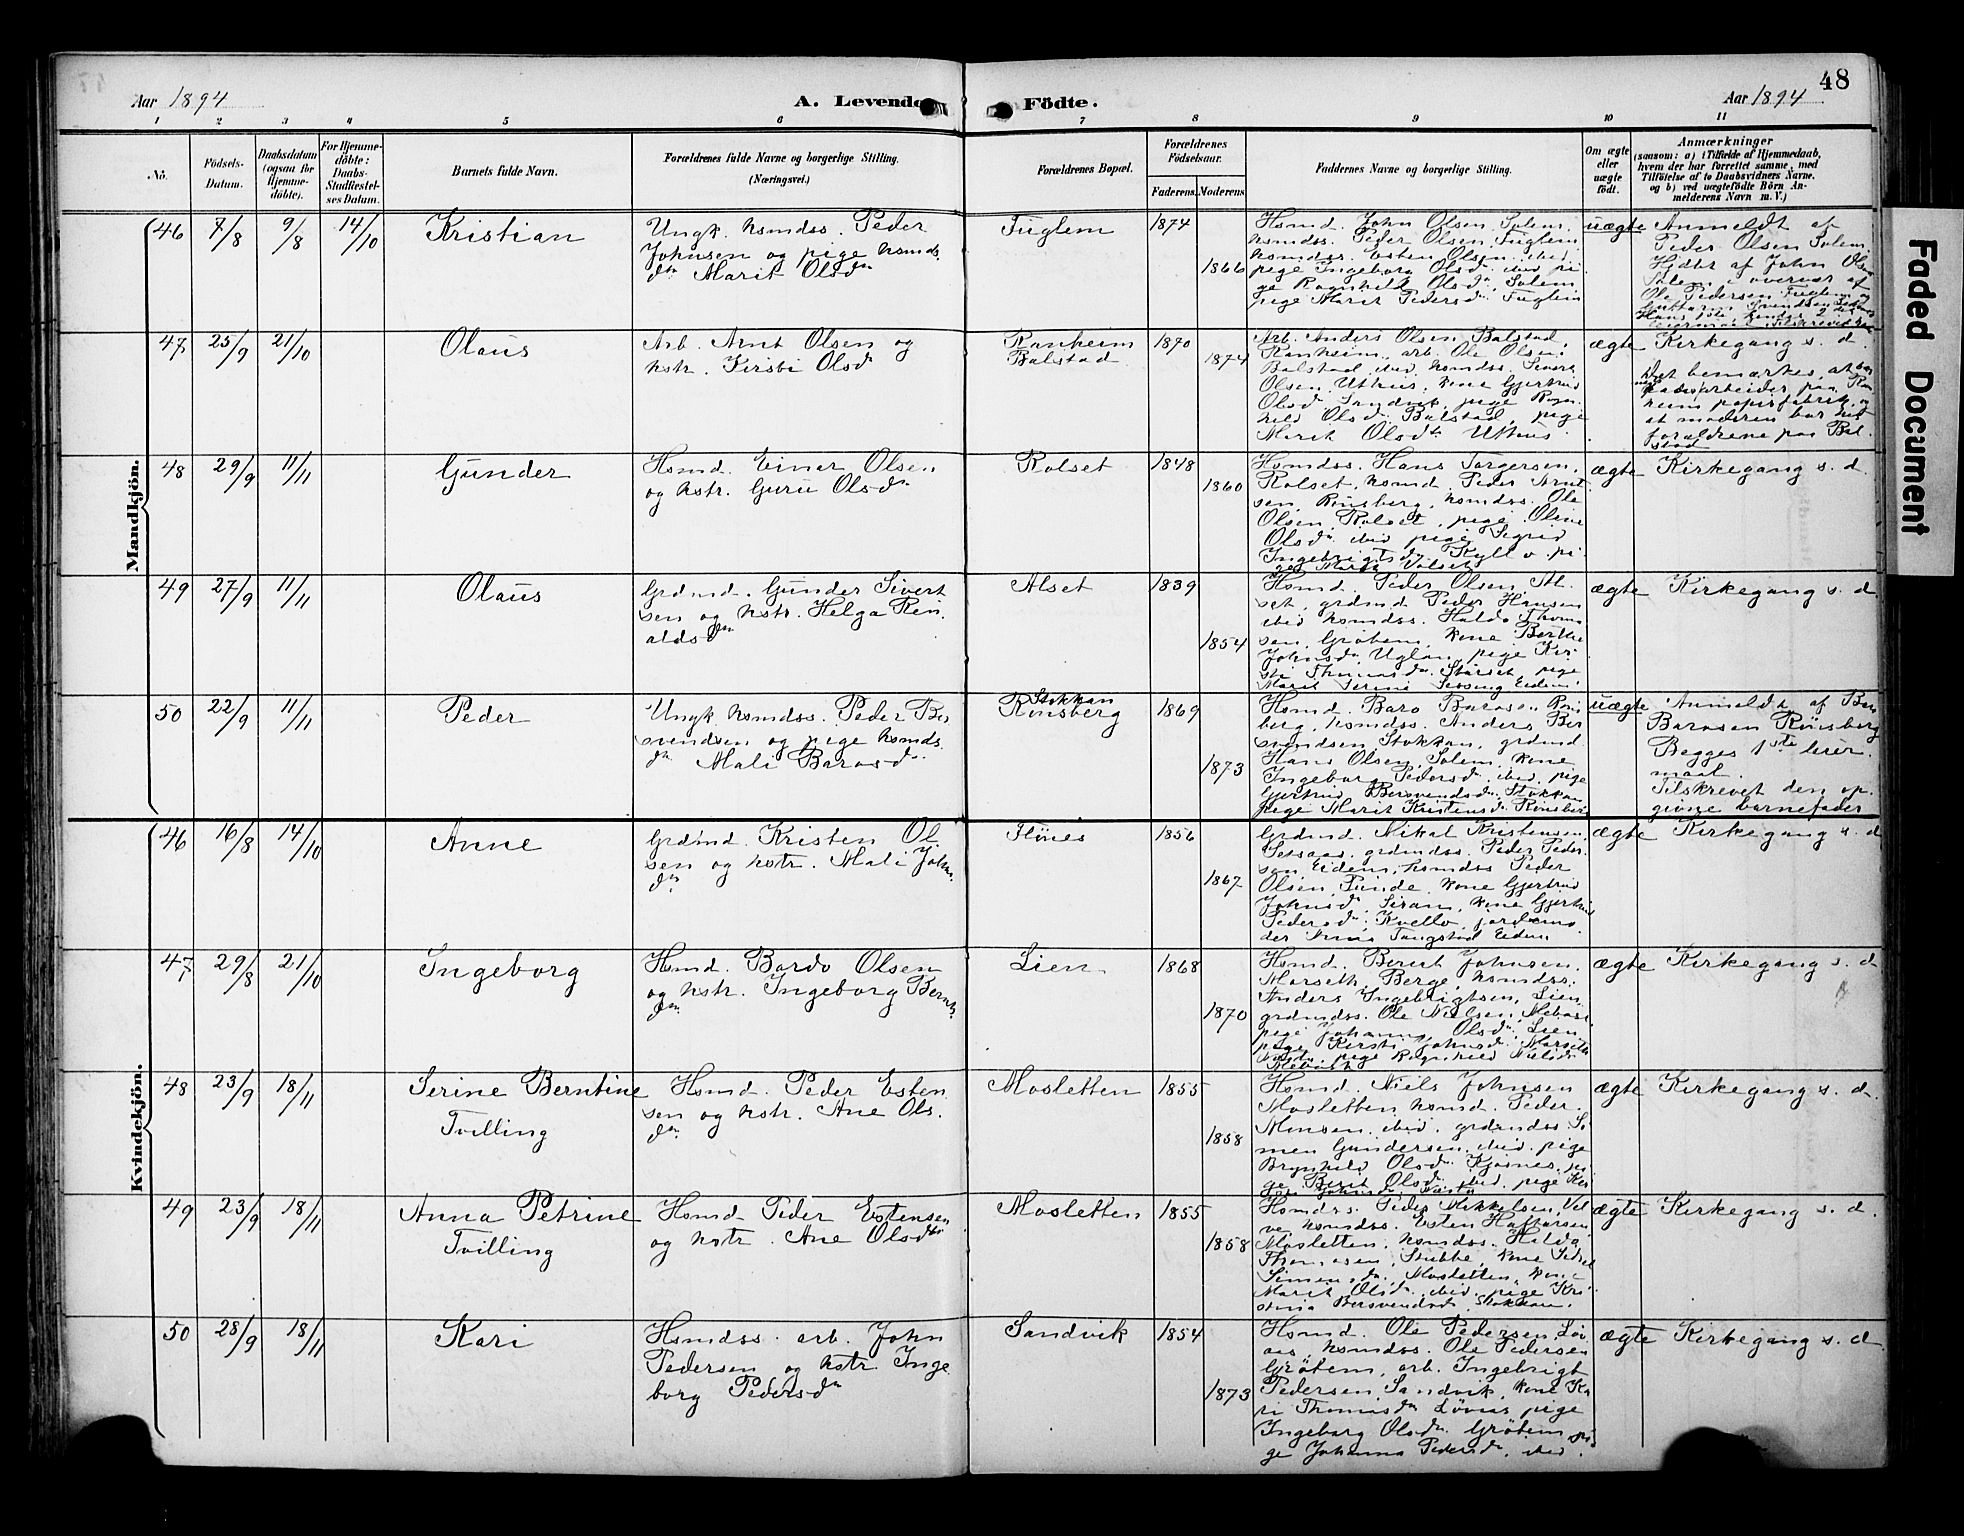 48
Aar 1894
A. Levende
Födte.
Aar 1894
1 2 3 4 5 6 7 8 9 10 11
No.
Födsels-
Datum.
Daabsdatum
(ogsaa for
Hjemme-
döbte).
For Hjemme-
döbte:
Daabs-
Stadfæstel-
ses Datum.
Barnets fulde Navn.
Forældrenes fulde Navne og borgerlige Stilling.
(Næringsvei.)
Forældrenes Bopæl.
Forældrenes
Fødselsaar.
Faderens. Moderens.
Faddernes Navne og borgerlige Stilling.
Om ægte
eller
uægte
födt.
Anmærkninger
(saasom: a) i Tilfælde af Hjemmedaab,
hvem der har forrettet samme, med
Tilföielse af to Daabsvidners Navne,
og b) ved uægtefödte Börn An-
melderens Navn m. V.)
Mandkjön.
46 7/8 9/8 14/10
Kristian
Ungk. husmdss. Peder
Johnsen og pige husmds
dtr Marit Olsdtr
Fuglem
1874
1866
Husmd. John Olsen Solem,
husmdss. Peder Olsen Fuglem
husmdss. Esten Olsen ibid
pige Ingeborg Olsdtr ibid pi-
ge Ragnhild Olsdtr Solem
pige Marit Pedersdtr Fuglem
uægte
Anmeldt af
Peder Olsen Solem
Hjdbt af John Olsen
Solem i overvær af
Ole Pedersen Fuglem og
47 25/9 21/10
Olaus
Arb. Arnt Olsen og
hstr. Kirsti Olsdtr
Ranheim
Balstad
1870
1874
Arb. Anders Olsen Balstad,
Ranheim, arb. Ole Olsen
Balstad ibid husmdss. Sivert
Olsen Uthus, kone Gjertrud
Olsdtr Sandvik, pige Ragn-
hild Olsdtr Balstad, pige
Marit Olsdtr Uthus
ægte
Kirkegang s. d.
Det bemærkes, at
faderen arbeider paa Ran
heim papirfabrik, og
at moderen bor hos
forældrene paa Bal-
stad
48 29/9 11/11
Gunder
Husmd. Einar Olsen
og hstr. Guru Olsdtr
Rolset
1848
1860
Husmdss. Hans Torgersen,
Rolset, husmd. Peder Arnt
sen, Rønsberg, husmdss. Ole
Olsen Rolset, pige Oline
Olsdtr ibid pige Sigrid
Ingebrigtsdtr Kyllo pi-
ge Marit Volset
ægte
Kirkegang s. d.
49 27/9 11/11
Olaus
Grdmd. Gunder Sivert
sen og hstr. Helga Ren-
aldsdtr
Alset
1839
1854
Husmd. Peder Olsen Al-
set, grdmd Peder Hansen
ibid husmdss. Haldo Thom
sen, Grøtem, kone Berthe
Johnsdtr Uglan, pige Kir-
sti Thomasdtr Stærset, pige
Marit Serine
ægte
Kirkegang s. d.
50 22/9 11/11
Peder
Ungk. husmdss. Peder Ber
svendsen og pige husmds
dtr Mali Barosdtr
Stokkan
Rønsberg
1869
1873
Husmd. Baro Barosen Røns-
berg, husmdss. Anders Ber
svendsen Stokkan, grdmd.
Hans Olsen, Solem, kone
Ingeborg Pedersdtr ibid, pige
Gjertrud Bersvendsdtr Stokkan
pige Marit Kristensdtr Rønsberg
uægte
Anmeldt af Baro
Barosen Rønsberg
Begges 1ste leier-
maal.
Tilskrevet den op-
givne barnefader
Kvindekjön.
46 16/8 14/10
Anne
Grdmd. Kristen Ol-
sen og hstr. Mali Johns
dtr
Flønes
1856
1867
Grdmd. Nikal Kristensen,
Setsaas. grdmdss. Peder Peder-
sen, Eidem, husmdss Peder
Olsen, Punde, kone Gjertrud
Johnsdtr Siran, kone Gjertrud
Pedersdtr Kvello, jordemo
der Anna Tangstad Eidem
ægte
Kirkegang s. d
47 29/8 21/10
Ingeborg
Husmd. Bardo Olsen
og hstr. Ingeborg Bernts
dtr
Lien
1868
1870
Husmd. Bernt Johnsen,
Marseth, Berge, husmdss.
Anders Ingebrigtsen, Lien,
grdmdss. Ole Nielsen, Mebost
pige Johanna Olsdtr Lien
pige Kirsti Johnsdtr Marseth
pige Ragnhild Nielsdtr
Mebost
ægte
Kirkegang s. d
48 23/9 18/11
Serine Berntine
Tvilling
Husmd. Peder Esten
sen og hstr. Ane Ols-
dtr
Mosletten
1855
1858
Husmd. Niels Johnsen
Mosletten husmd. Peder
Monsen ibid. grdmdss Si
men Gundersen ibid. pige
Brynhild Olsdtr Kjøsnes, pi-
ge Berit Olsdtr ibid. pige Kir
ægte
Kirkegang s. d.
49 23/9 18/11
Anna Petrine
Tvilling
Husmd Peder Estensen
og hstr. Ane Olsdtr
Mosletten
1855
1858
Husmdss. Peder Mikkelsen Vel
ve husmdss. Esten Haftorsen
Mosletten, husmdss. Haldo
Thomasen, Stubbe, kone Sidsel
Simensdtr Mosletten, kone
Marit Olsdtr ibid. pige Kri
stina Bersvendsdtr Stokkan.
ægte
Kirkegang s. d.
50 28/9 18/11
Kari
Husmdss. arb. John
Pedersen og hstr Inge
borg Pedersdtr
Sandvik
1854
1873
Husmd. Ole Pedersen Løv-
aas, husmdss. Ole Pedersen
Grøtem, arb. Ingebrigt
Pedersen Sandvik, kone Ka
ri Thomasdtr Løvaas pige
Ingeborg Olsdtr Grøtem pi-
ge Johanna Pedersdtr ibid.
ægte
Kirkegang s. d
Faded Document